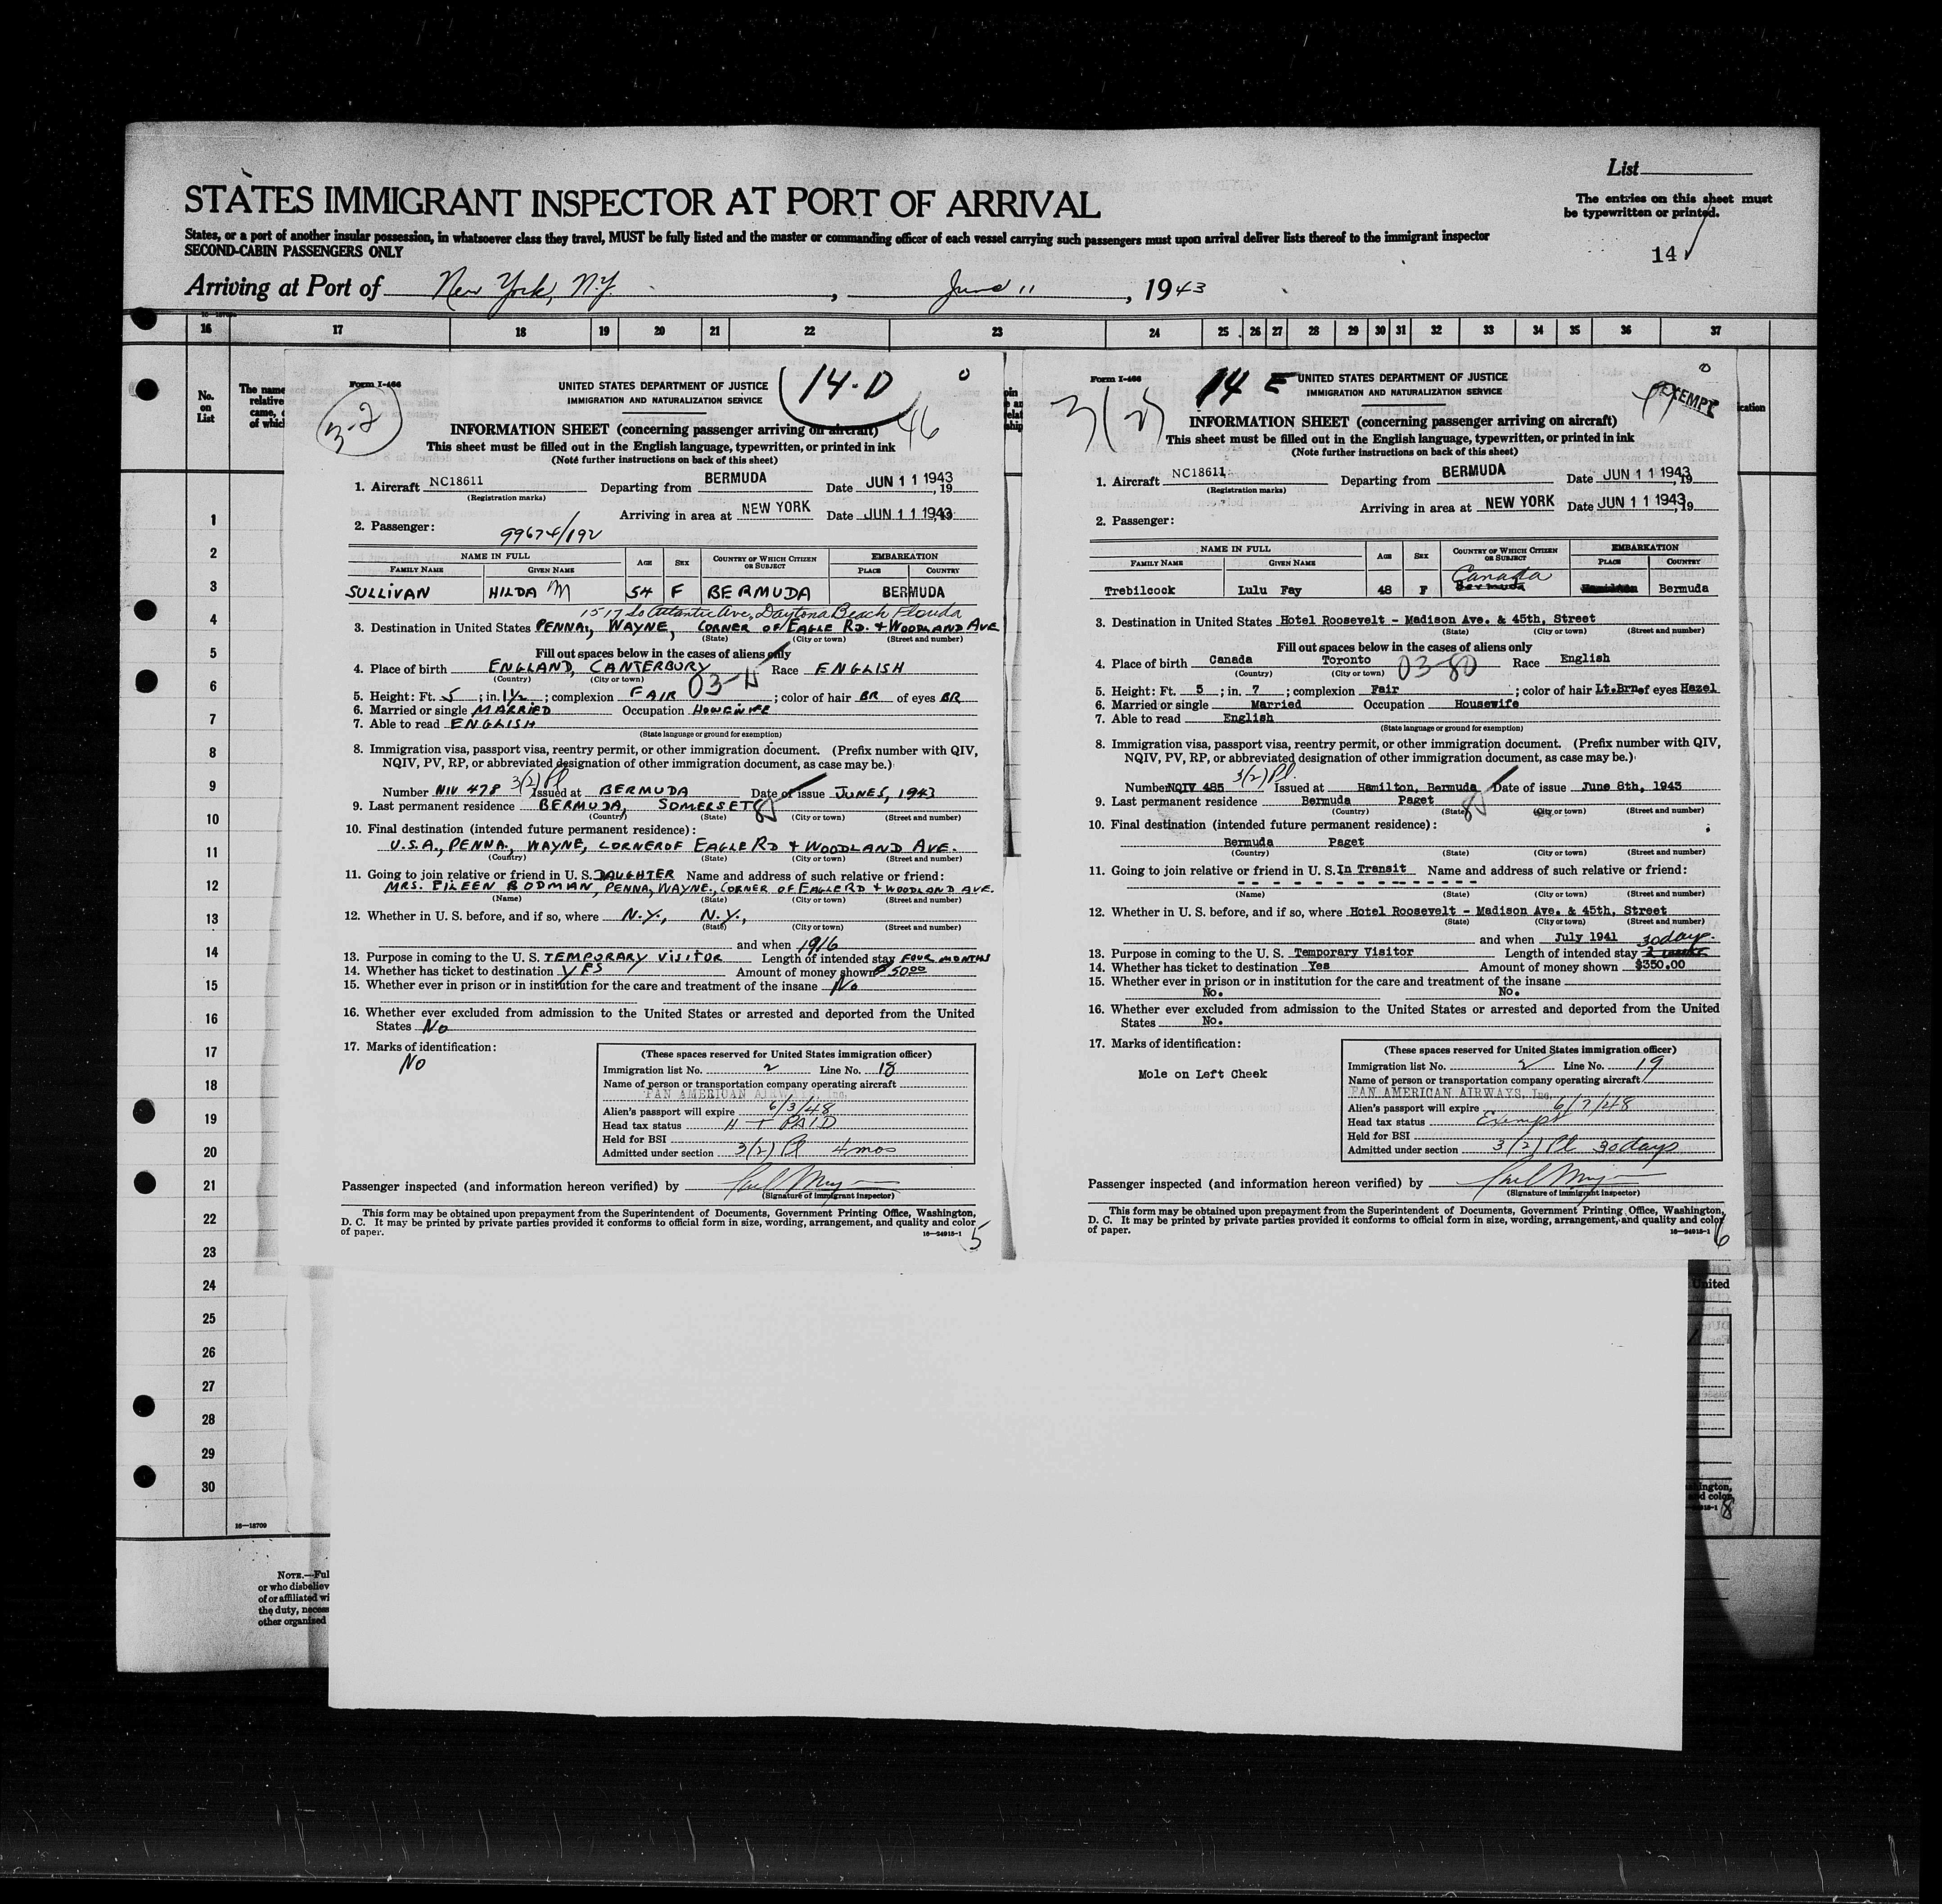 List
STATES IMMIGRANT INSPECTOR AT PORT OF ARRIVAL
The entries on this sheet must
be typewritten or printed.
States, or a port of another insular possession, in whatsoever class they travel, MUST be fully listed and the master or commanding officer of each vessel carrying such passengers must upon arrival deliver lists thereof to the immigrant inspector
SECOND-CABIN PASSENGERS ONLY
14
Arriving at Port of New York, N.Y. , June 11 , 1943
16 17 18 19 20 21 22 23 24 25 26 27 28 29 30 31 32 33 34 35 36 37
No.
on
List
The name
relative
came,
of which
1
2
3
4
5
6
7
8
9
10
11
12
13
14
15
16
17
18
19
20
21
22
23
24
25
26
27
28
29
30
16—18709
NOTE.—Ful
or who disbeliev
of or affiliated wi
the duty, necess
other organized
Form I-466
3-2
UNITED STATES DEPARTMENT OF JUSTICE
IMMIGRATION AND NATURALIZATION SERVICE
14-D
46
INFORMATION SHEET (concerning passenger arriving on aircraft)
This sheet must be filled out in the English language, typewritten, or printed in ink
(Note further instructions on back of this sheet)
1. Aircraft NC18611 Departing from BERMUDA Date JUN 11 1943, 19
(Registration marks)
Arriving in area at NEW YORK Date JUN 11 1943, 19
2. Passenger: 99674/192
NAME IN FULL AGE SEX COUNTRY OF WHICH CITIZEN OR SUBJECT EMBARKATION
FAMILY NAME GIVEN NAME PLACE COUNTRY
SULLIVAN HILDA M 54 F BERMUDA BERMUDA
1517 So Atlantic Ave, Daytona Beach, Florida
3. Destination in United States PENNA, WAYNE, CORNER OF EAGLE RD. + WOODLAND AVE
(State) (City or town) (Street and number)
Fill out spaces below in the cases of aliens only
4. Place of birth ENGLAND, CANTERBURY Race ENGLISH
(Country) (City or town)
5. Height: Ft. 5 ; in. 1½ ; complexion FAIR ; color of hair BR of eyes BR
6. Married or single MARRIED Occupation HOUSEWIFE
7. Able to read ENGLISH
(State language or ground for exemption)
8. Immigration visa, passport visa, reentry permit, or other immigration document. (Prefix number with QIV,
NQIV, PV, RP, or abbreviated designation of other immigration document, as case may be.)
3(2) Pl
Number NIV 478 Issued at BERMUDA Date of issue JUNE 5, 1943
9. Last permanent residence BERMUDA, SOMERSET
(Country) (State) (City or town) (Street and number)
10. Final destination (intended future permanent residence):
U.S.A., PENNA., WAYNE, CORNER OF EAGLE RD + WOODLAND AVE.
(Country) (State) (City or town) (Street and number)
11. Going to join relative or friend in U. S. DAUGHTER Name and address of such relative or friend:
MRS. EILEEN BODMAN, PENNA, WAYNE, CORNER OF EAGLE RD + WOODLAND AVE.
(Name) (State) (City or town) (Street and number)
12. Whether in U. S. before, and if so, where N.Y., N.Y.,
(State) (City or town) (Street and number)
and when 1916
13. Purpose in coming to the U. S. TEMPORARY VISITOR Length of intended stay FOUR MONTHS
14. Whether has ticket to destination YES Amount of money shown $50.00
15. Whether ever in prison or in institution for the care and treatment of the insane No
16. Whether ever excluded from admission to the United States or arrested and deported from the United
States No
17. Marks of identification:
No
(These spaces reserved for United States immigration officer)
Immigration list No. 2 Line No. 18
Name of person or transportation company operating aircraft
PAN AMERICAN AIRWAYS, Inc.
Alien's passport will expire 6/3/48
Head tax status H T PAID
Held for BSI
Admitted under section 3(2) Pl 4 mos
Passenger inspected (and information hereon verified) by
(Signature of immigrant inspector)
This form may be obtained upon prepayment from the Superintendent of Documents, Government Printing Office, Washington,
D. C. It may be printed by private parties provided it conforms to official form in size, wording, arrangement, and quality and color
of paper. 16—24915-1
5
Form I-466
3(2)
14 E
UNITED STATES DEPARTMENT OF JUSTICE
IMMIGRATION AND NATURALIZATION SERVICE
EXEMPT
INFORMATION SHEET (concerning passenger arriving on aircraft)
This sheet must be filled out in the English language, typewritten, or printed in ink
(Note further instructions on back of this sheet)
1. Aircraft NC18611 Departing from BERMUDA Date JUN 11 1943, 19
(Registration marks)
Arriving in area at NEW YORK Date JUN 11 1943, 19
2. Passenger:
NAME IN FULL AGE SEX COUNTRY OF WHICH CITIZEN OR SUBJECT EMBARKATION
FAMILY NAME GIVEN NAME PLACE COUNTRY
Canada
Trebilcock Lulu Fay 48 F Bermuda Hamilton Bermuda
3. Destination in United States Hotel Roosevelt - Madison Ave. & 45th, Street
(State) (City or town) (Street and number)
Fill out spaces below in the cases of aliens only
4. Place of birth Canada Toronto 03-80 Race English
(Country) (City or town)
5. Height: Ft. 5 ; in. 7 ; complexion Fair ; color of hair Lt.Brn of eyes Hazel
6. Married or single Married Occupation Housewife
7. Able to read English
(State language or ground for exemption)
8. Immigration visa, passport visa, reentry permit, or other immigration document. (Prefix number with QIV,
NQIV, PV, RP, or abbreviated designation of other immigration document, as case may be.)
3(2) Pl.
Number NQIV 485 Issued at Hamilton, Bermuda Date of issue June 8th, 1943
9. Last permanent residence Bermuda Paget
(Country) (State) (City or town) (Street and number)
10. Final destination (intended future permanent residence):
Bermuda Paget
(Country) (State) (City or town) (Street and number)
11. Going to join relative or friend in U. S. In Transit Name and address of such relative or friend:
- - - - - - - - - - - - - - -
(Name) (State) (City or town) (Street and number)
12. Whether in U. S. before, and if so, where Hotel Roosevelt - Madison Ave. & 45th, Street
(State) (City or town) (Street and number)
and when July 1941 30 days.
13. Purpose in coming to the U. S. Temporary Visitor Length of intended stay
14. Whether has ticket to destination Yes Amount of money shown $350.00
15. Whether ever in prison or in institution for the care and treatment of the insane
No. No.
16. Whether ever excluded from admission to the United States or arrested and deported from the United
States No.
17. Marks of identification:
Mole on Left Cheek
(These spaces reserved for United States immigration officer)
Immigration list No. 2 Line No. 19
Name of person or transportation company operating aircraft
PAN AMERICAN AIRWAYS, Inc.
Alien's passport will expire 6/7/48
Head tax status Exempt
Held for BSI
Admitted under section 3(2) Pl 30 days
Passenger inspected (and information hereon verified) by
(Signature of immigrant inspector)
This form may be obtained upon prepayment from the Superintendent of Documents, Government Printing Office, Washington,
D. C. It may be printed by private parties provided it conforms to official form in size, wording, arrangement, and quality and color
of paper. 16—24915-1
6
United
hington,
d color
8